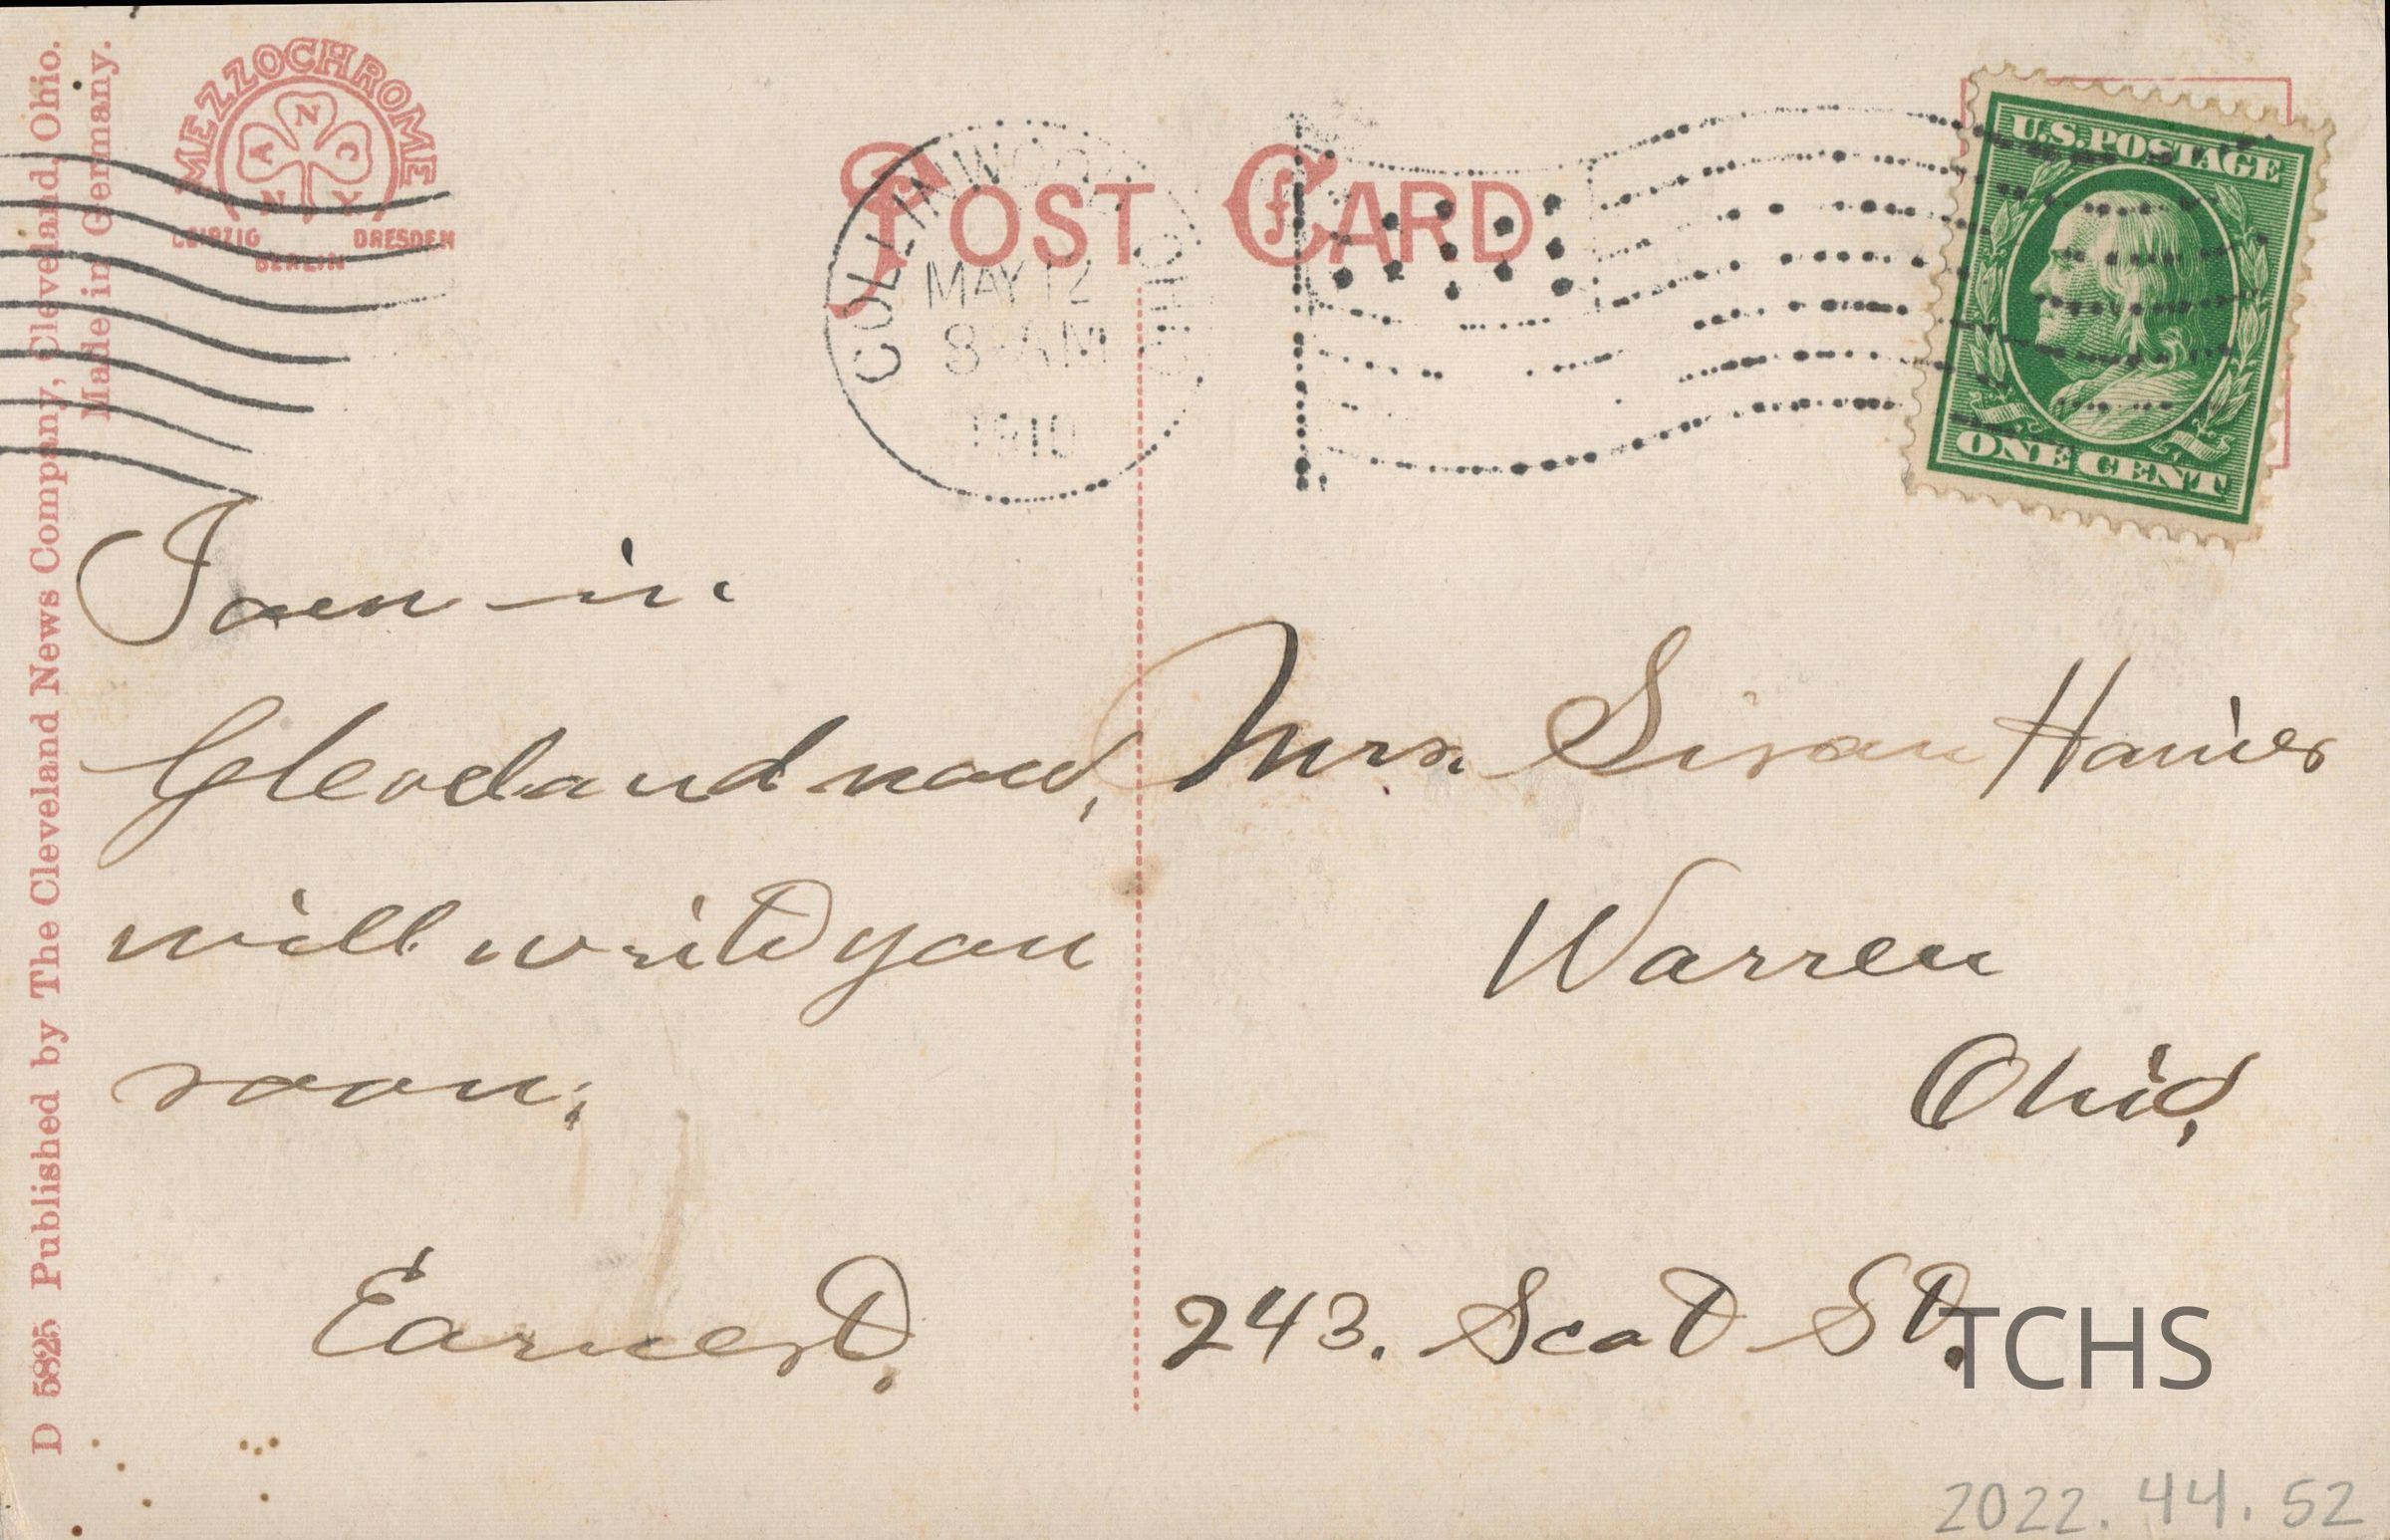 D 5825 Published by The Cleveland News Company, Cleveland, Ohio.
Made in Germany.
MEZZOCHROME
A N C
N Y
LEIPZIG BERLIN DRESDEN
POST CARD
COLLINWOOD OHIO
MAY 12
8 AM
1910
U.S. POSTAGE
ONE CENT
I am in
Cleveland now,
will write you
soon.
Earnest.
Mrs. Susan
Warren
Ohio,
243. Scot St.
TCHS
2022.44.52